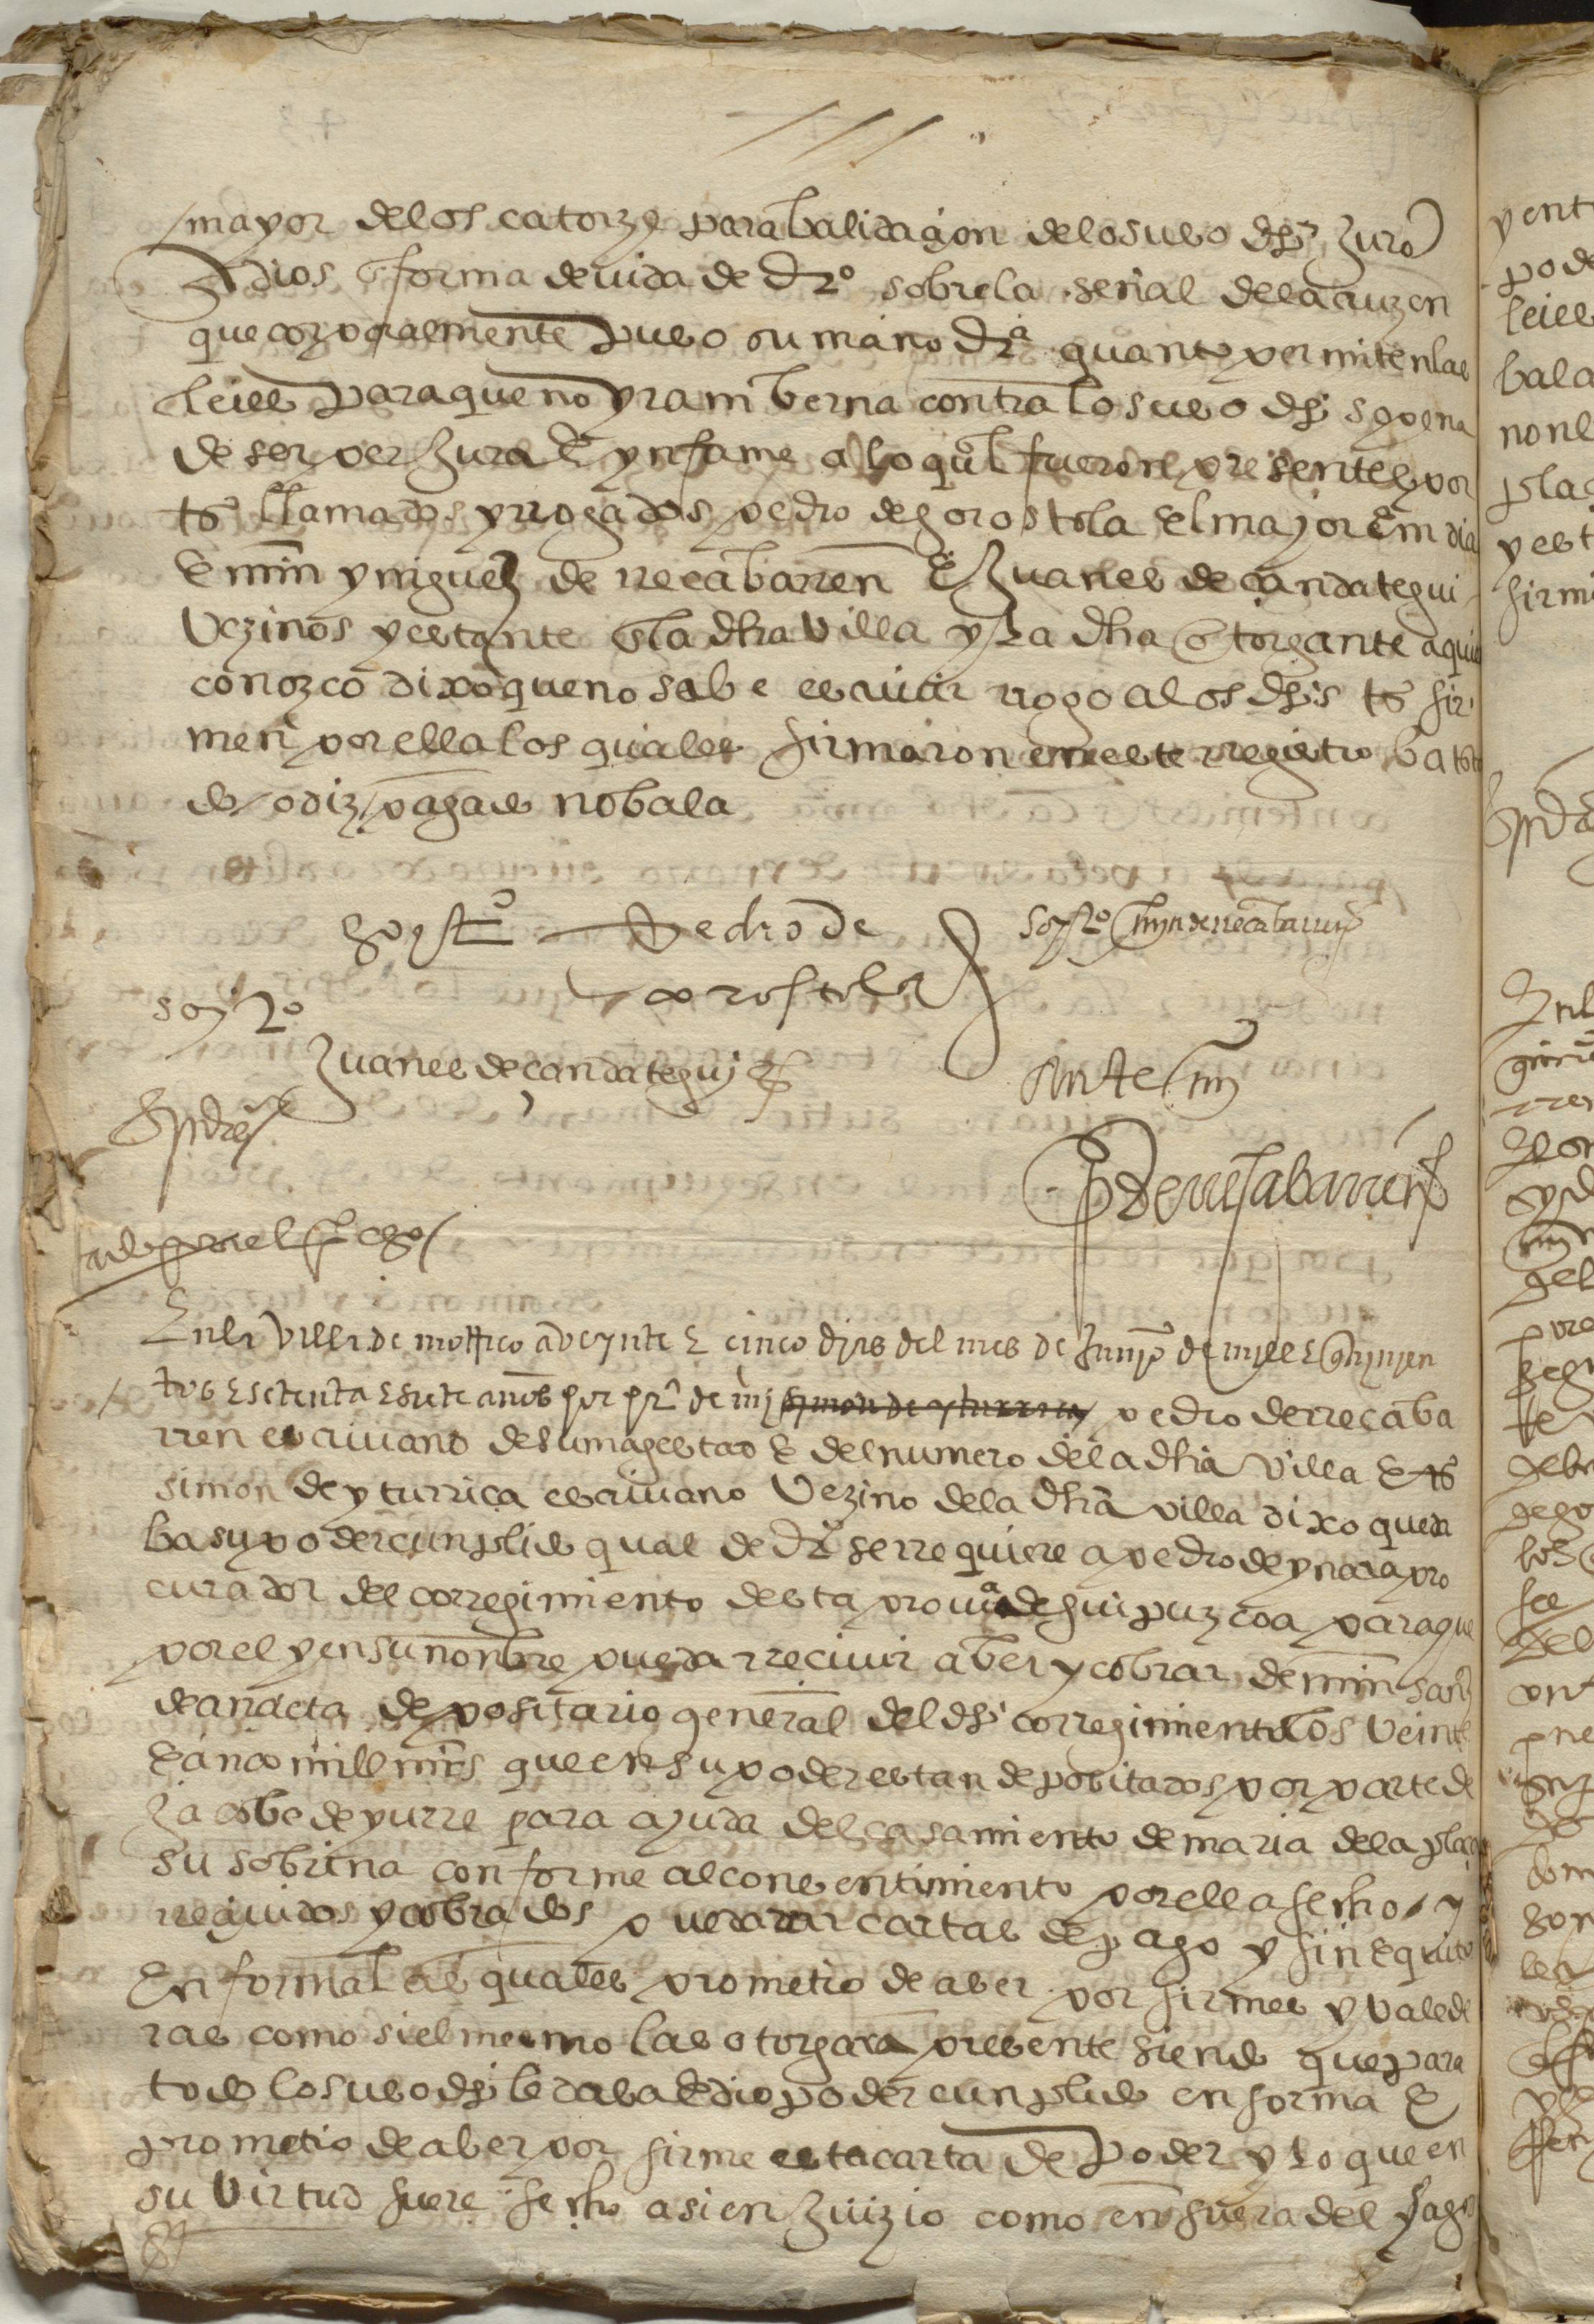 mayor de los catorze para balidaçion de lo suso dho juro
A dios en forma devida de dro sobre la señal de la cruz en
que corporalmente puso su mano dra quanto permiten las
leies para que no yra ni berna contra lo suso dho so pena
de ser perjura e ynfame a lo qual fueron presentes por
tos llamados y rrogados pedro de gorostola el mayor en dia
e min yniguez de rrecabarren e juanes de candategui
vezinos y estante en la dha villa y la dha otorgante a quien
conozco dixo que no sabe escrivir rrogo a los dhos tos fir
men por ella los quales firmaron en este rregistro ba tdo
do diz pagado no bala
soy to Pedro de
gorostola
soy to min de rrecabarren
soy to
juanes de candategui
Ante mi
P de rrecabarren
En la villa de motrico a veynte e cinco dias del mes de junio de mill e quinien
tos e setenta e siete años por pr de mi simon de yturriça pedro de rrecaba
rren escrivano de su magestad e del numero de la dha villa e tos
simon de yturriça escrivano vezino de la dha villa dixo que da
ba su poder cunplido qual de dro se rrequiere a pedro de ynarra pro
curador del corregimiento desta prouia de guipuzcoa para que
por el y en su nonbre pueda rrecivir aber y cobrar de min sanz
de anacta depositario general del dho corregimiento los veinte
e cinco mill mrs que en su poder estan depositados por parte de
jacobe de yurre para ayuda del casamiento de maria de la plaça
su sobrina conforme al consentimiento por ella fecho / y
rreçividos y cobrados pueda dar cartas de pago y fin e quito
en forma las quales prometio de aber por firmes y valede
ras como si el mesmo las otorgara presente siendo que para
todo lo suso dho le daba e dio poder cunplido en forma e
prometio de aber por firme esta carta de poder y lo que en
su virtud fuere fecho asi en juizio como en fuera del